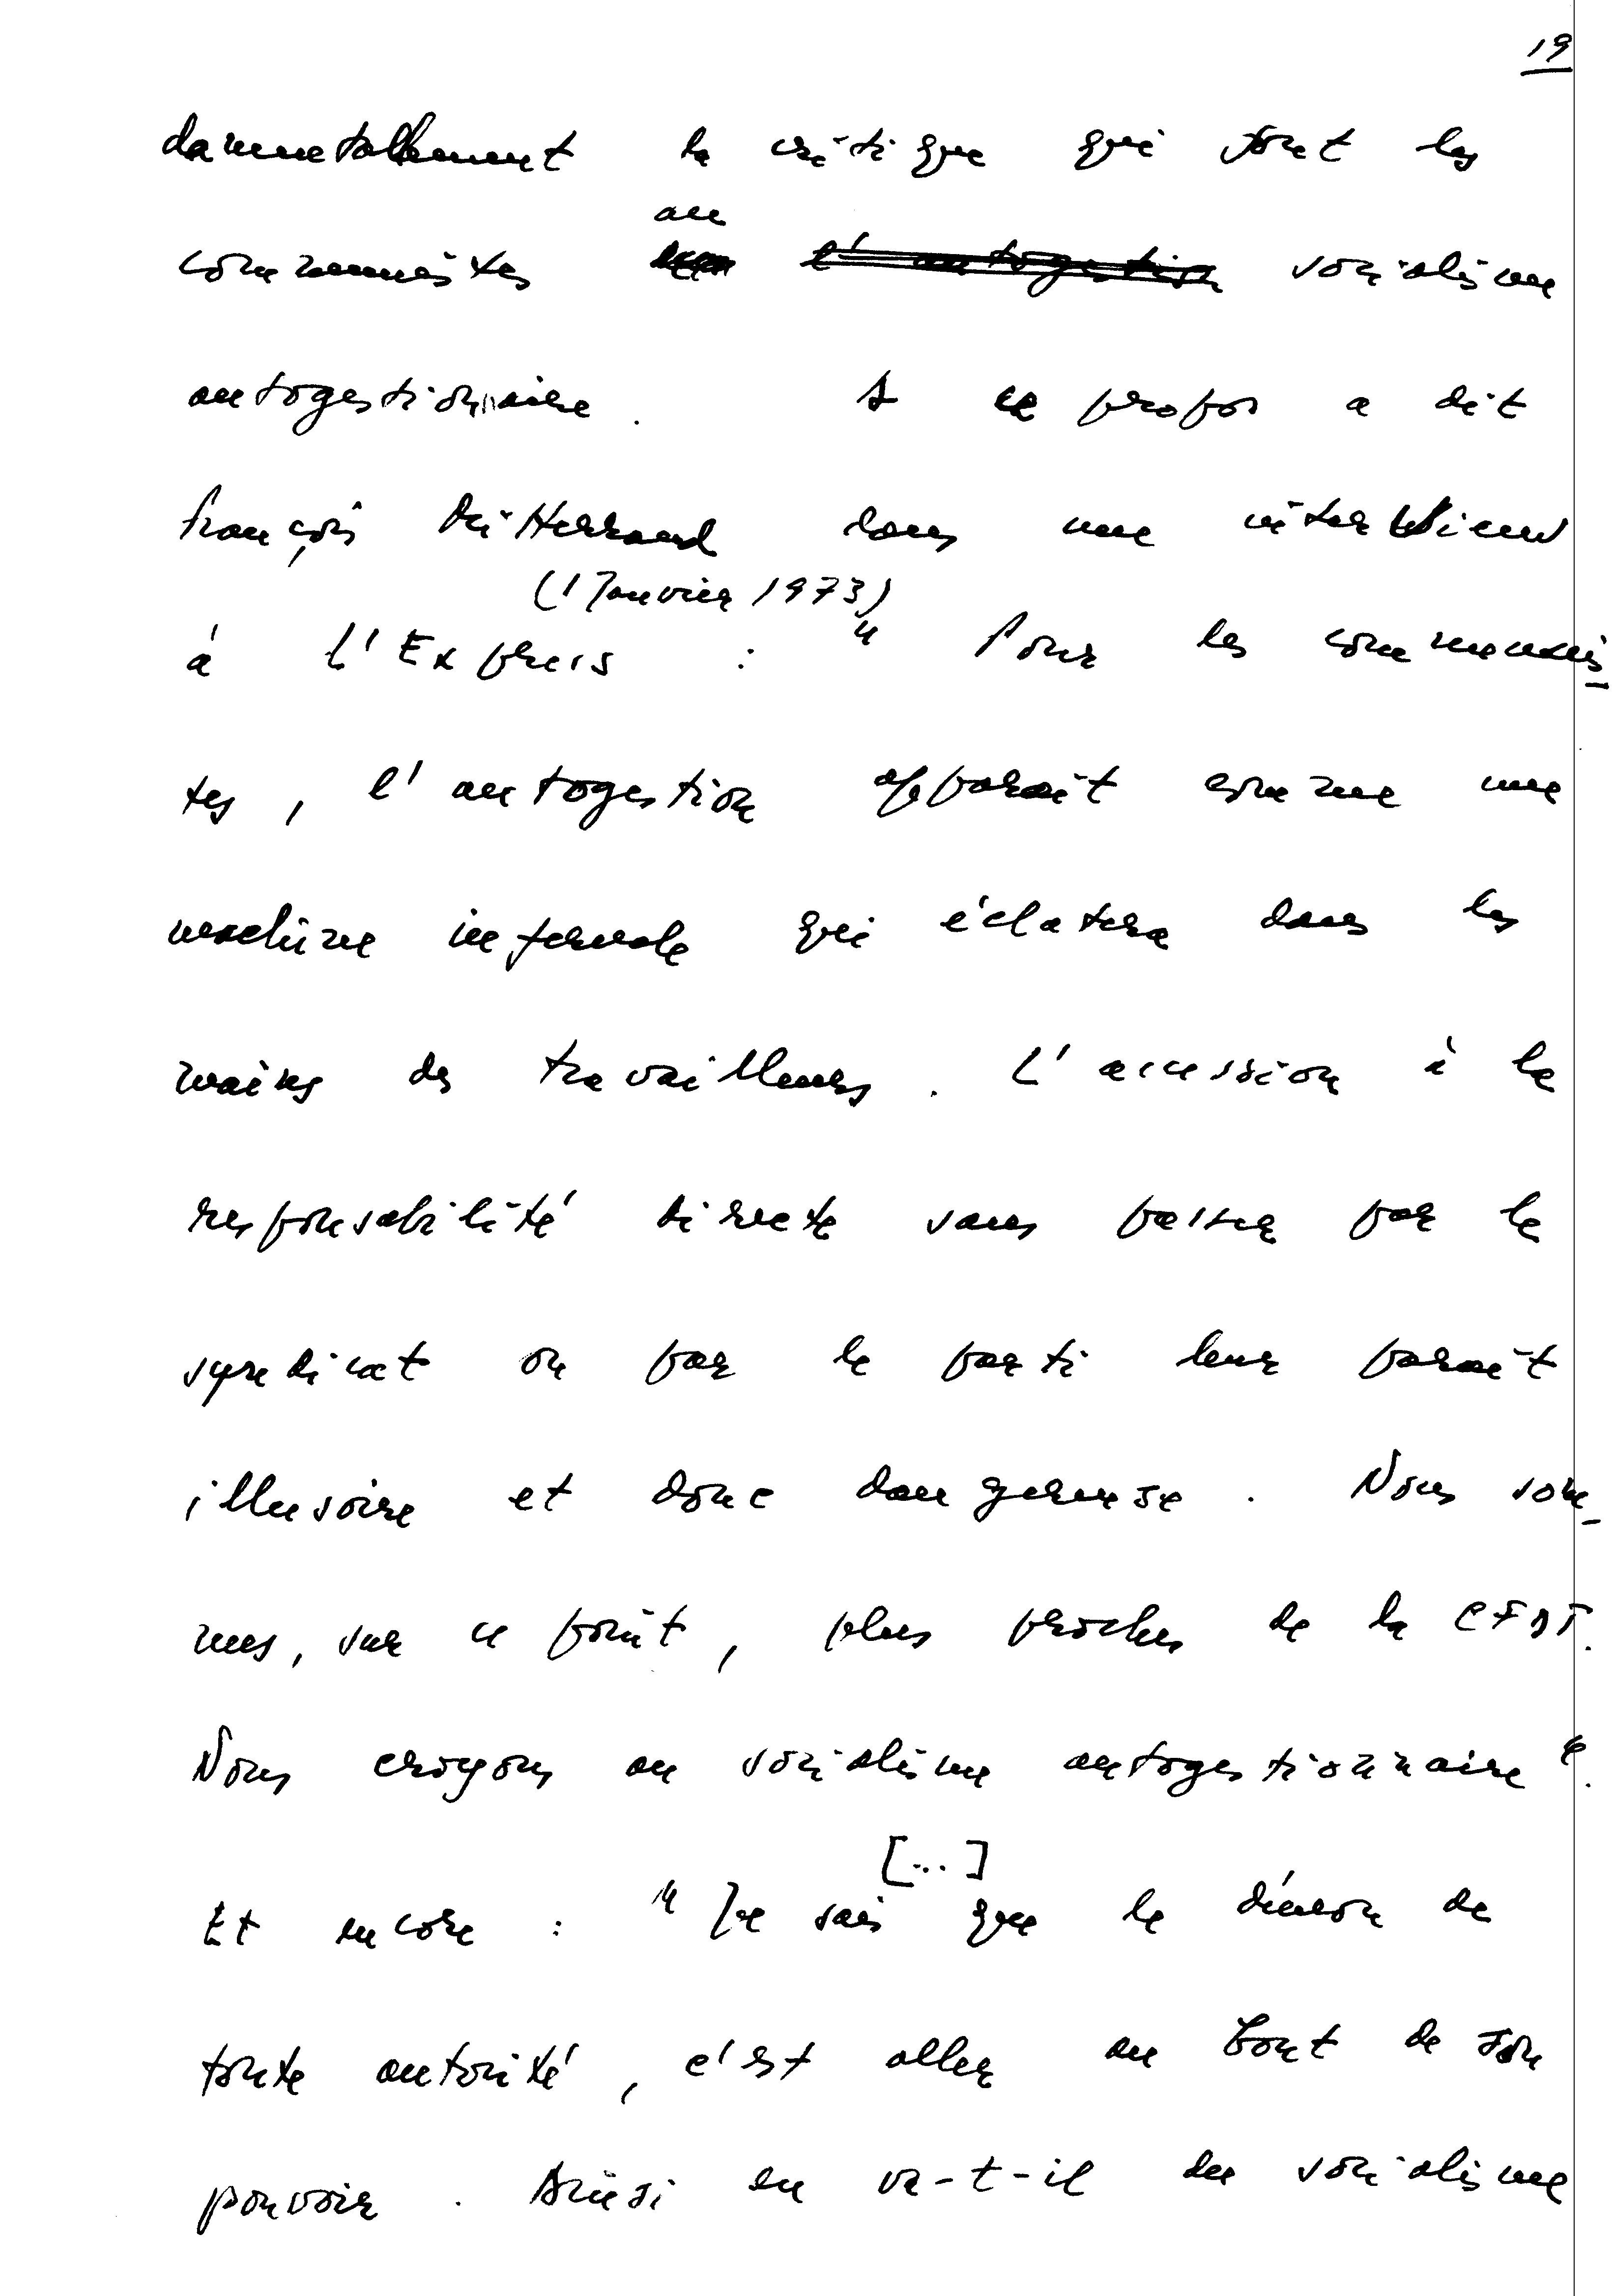 19
damnetallement la critique qui font les
au
communistes l'autogestion socialisme
autogestionnaire. A ce propos a dit
François Mitterrand dans une interview
(1 Janvier 1973)
à L'Expreis : " Pour les communis-
tes, l'autogestion apparait comme une
machine infernale qui éclatera dans les
mains des travailleurs. L'accession à la
responsabilité directe sans passer par le
syndicat ou par le parti leur parait
illusoire et donc dangereuse. Nous som-
mes, sur ce point, plus proches de la CFDT.
Nous croyons au socialisme autogestionnaire ".
[...]
Et encore : " Je sais que le démon de
toute autorité, c'est aller au bout de son
pouvoir. Ainsi en va-t-il du socialisme